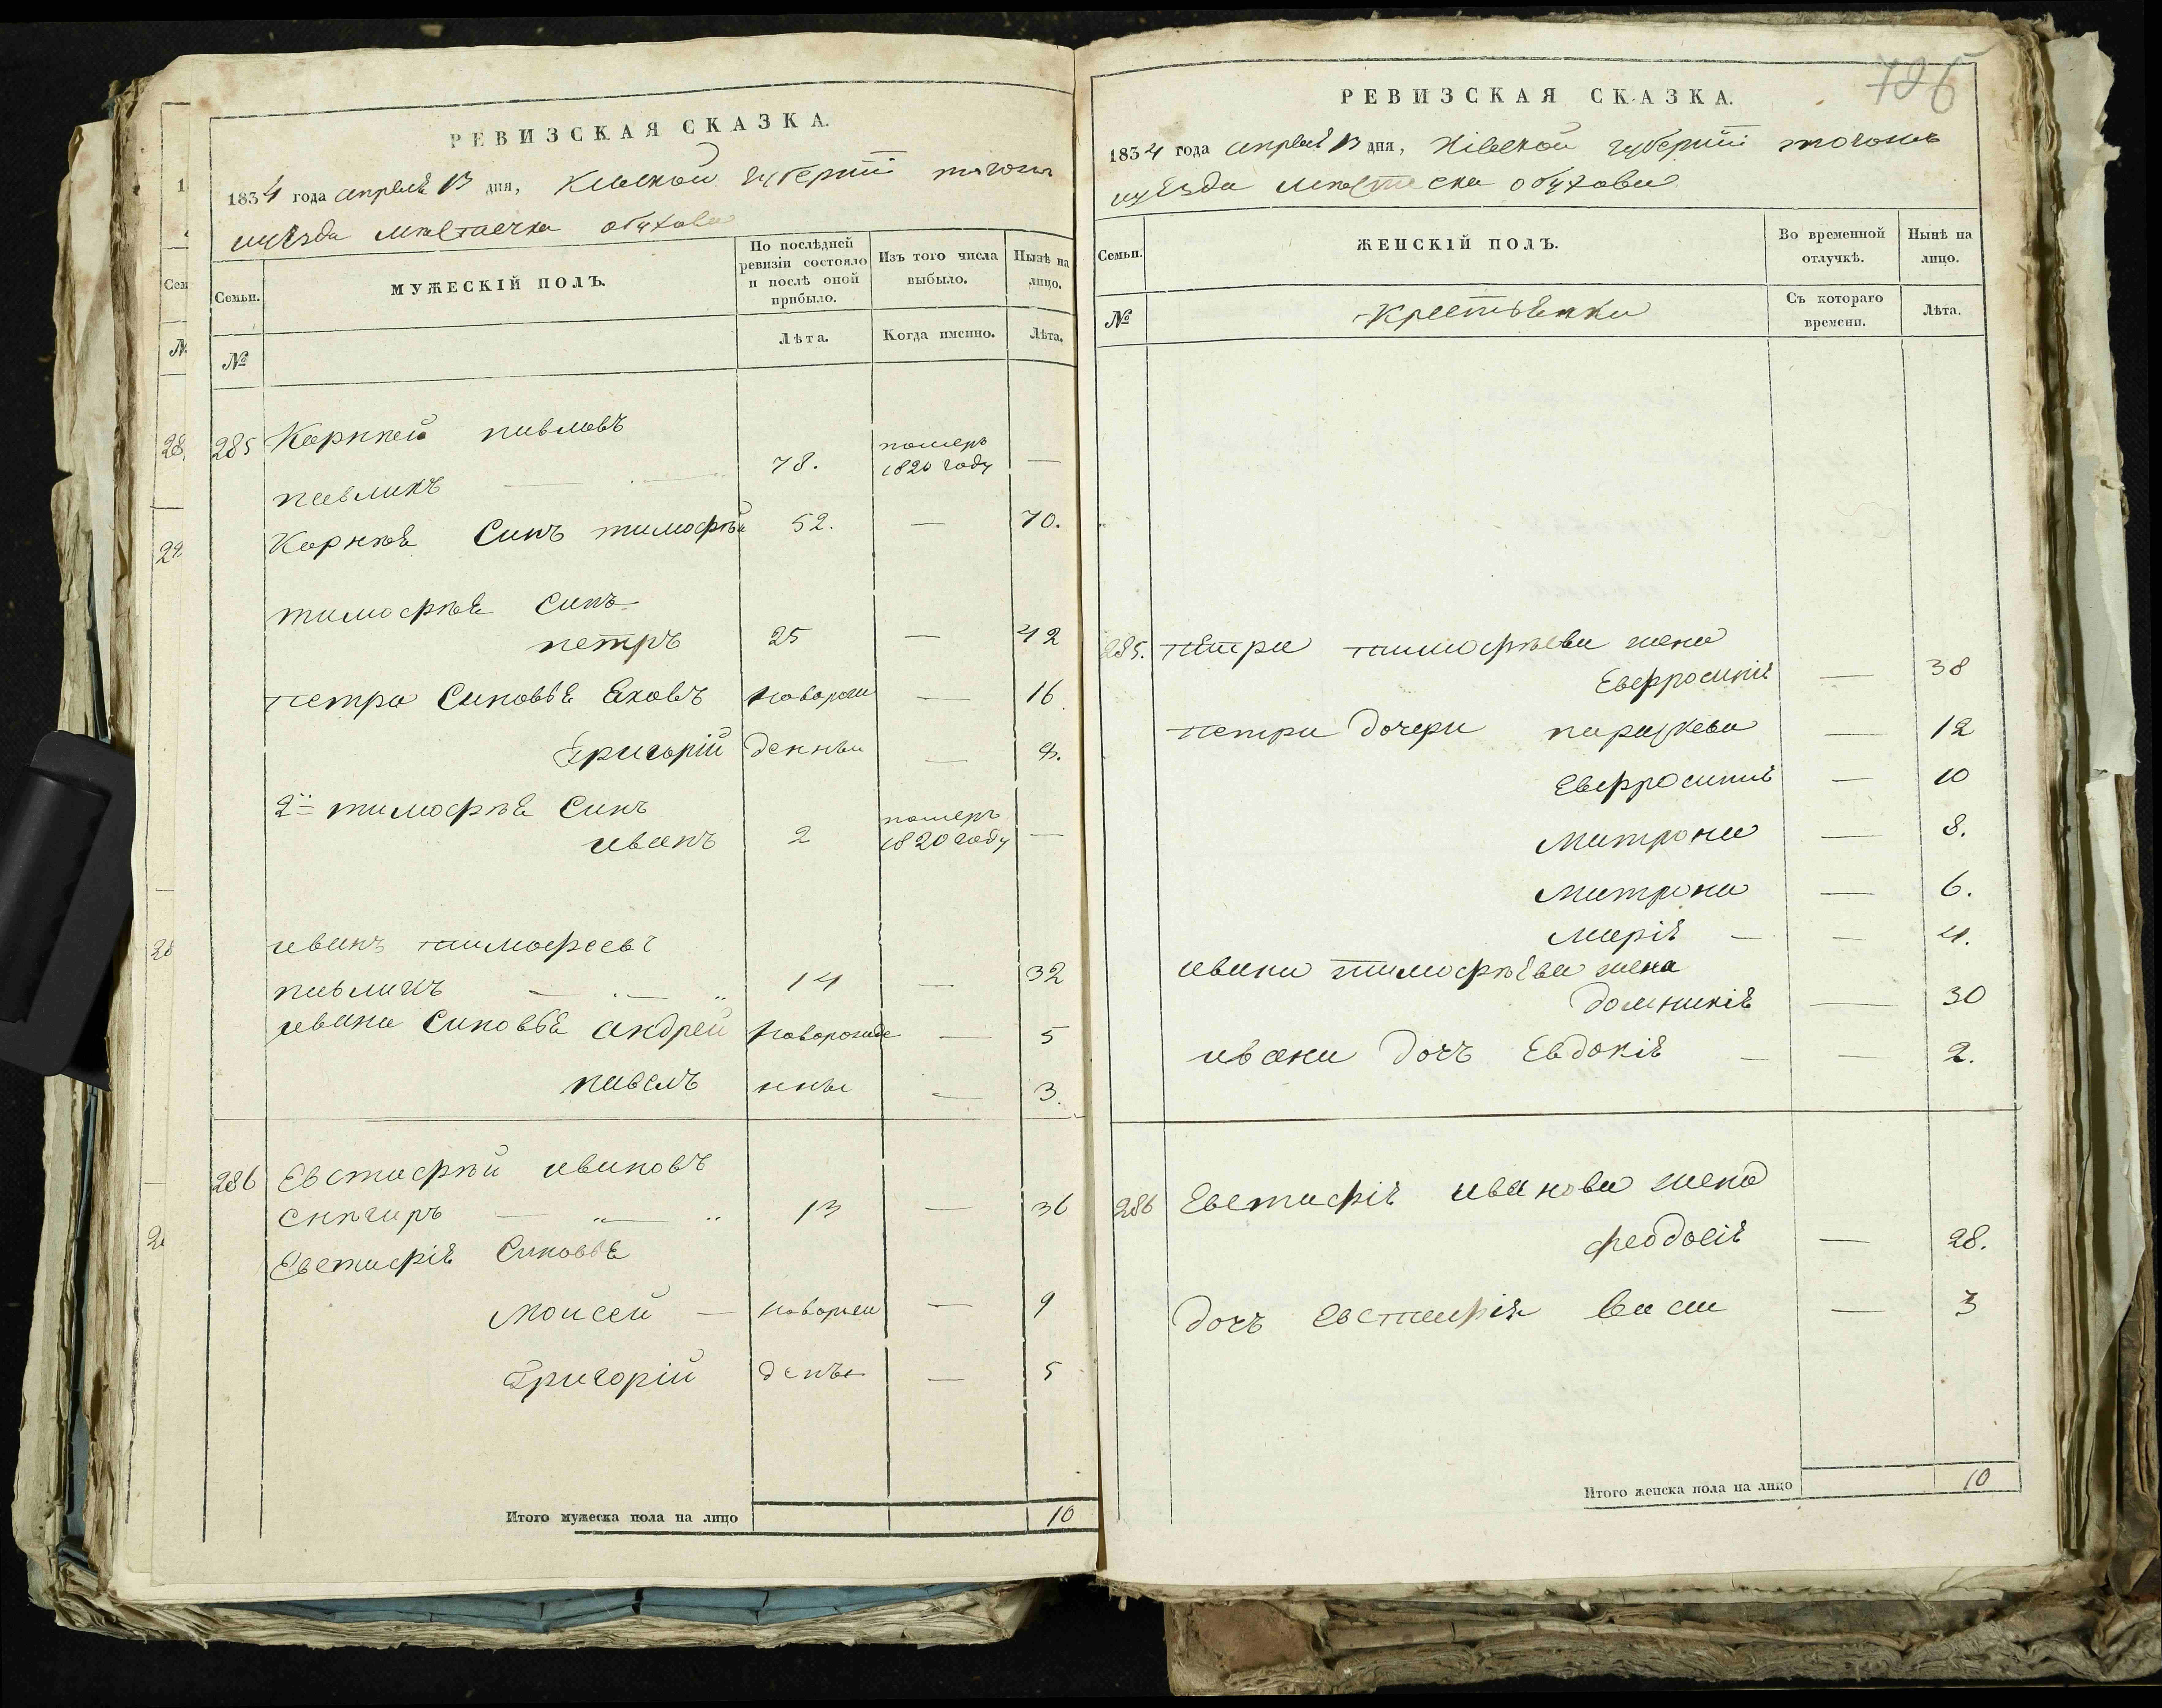 РЕВИЗСКАЯ СКАЗКА.
1834 года апреля 13 дня, Киевской губернии
уезда местечка обухова
Семьи.
МУЖЕСКІЙ ПОЛЪ.
По послѣдней ревизіи состояло и послѣ оной прибыло.
Изъ того числа выбыло.
Нынѣ на лицо.
№
Лѣта.
Когда именно.
Лѣта.
285 Корнией павловъ
павликъ 78. померъ 1820 году —
Корнѣя Синъ тимофѣй 52. — 70.
тимофѣя Синъ
петръ 25 — 42
петра Синовья Яковъ новорож — 16
Григорій денныи —
2й тимофѣя Синъ
иванъ 2 померъ 1820 году —
иванъ тимофеевъ
павликъ — 14 — 32
ивана Синовья андрей новорожде — 5
павелъ нны — 3.
286 Евстафѣй ивановъ
снѣгиръ — 13 — 36
Евстафія Синовья
Моисей — новорж — 9
Григорій денъы — 5
Итого мужеска пола на лицо 10
726
РЕВИЗСКАЯ СКАЗКА.
1834 года апреля 13 дня, Кіевской губерніи
уезда обухова
Семьи.
ЖЕНСКІЙ ПОЛЪ.
Во временной отлучкѣ.
Нынѣ на лицо.
№
крестьянки
Съ котораго времени.
Лѣта.
285. петра тимофѣева жена
Евфросинія — 38
петра дочери параскева — 12
Евфросинія — 10
Матрона — 8.
Матрона — 6.
Марія — — 4.
ивана тимофѣева жена
домникія — 30
ивана дочъ Евдокія — — 2.
286 Евстафія иванова жена
феодосія — 28.
дочъ Евстафія васса — 3
Итого женска пола на лицо 10